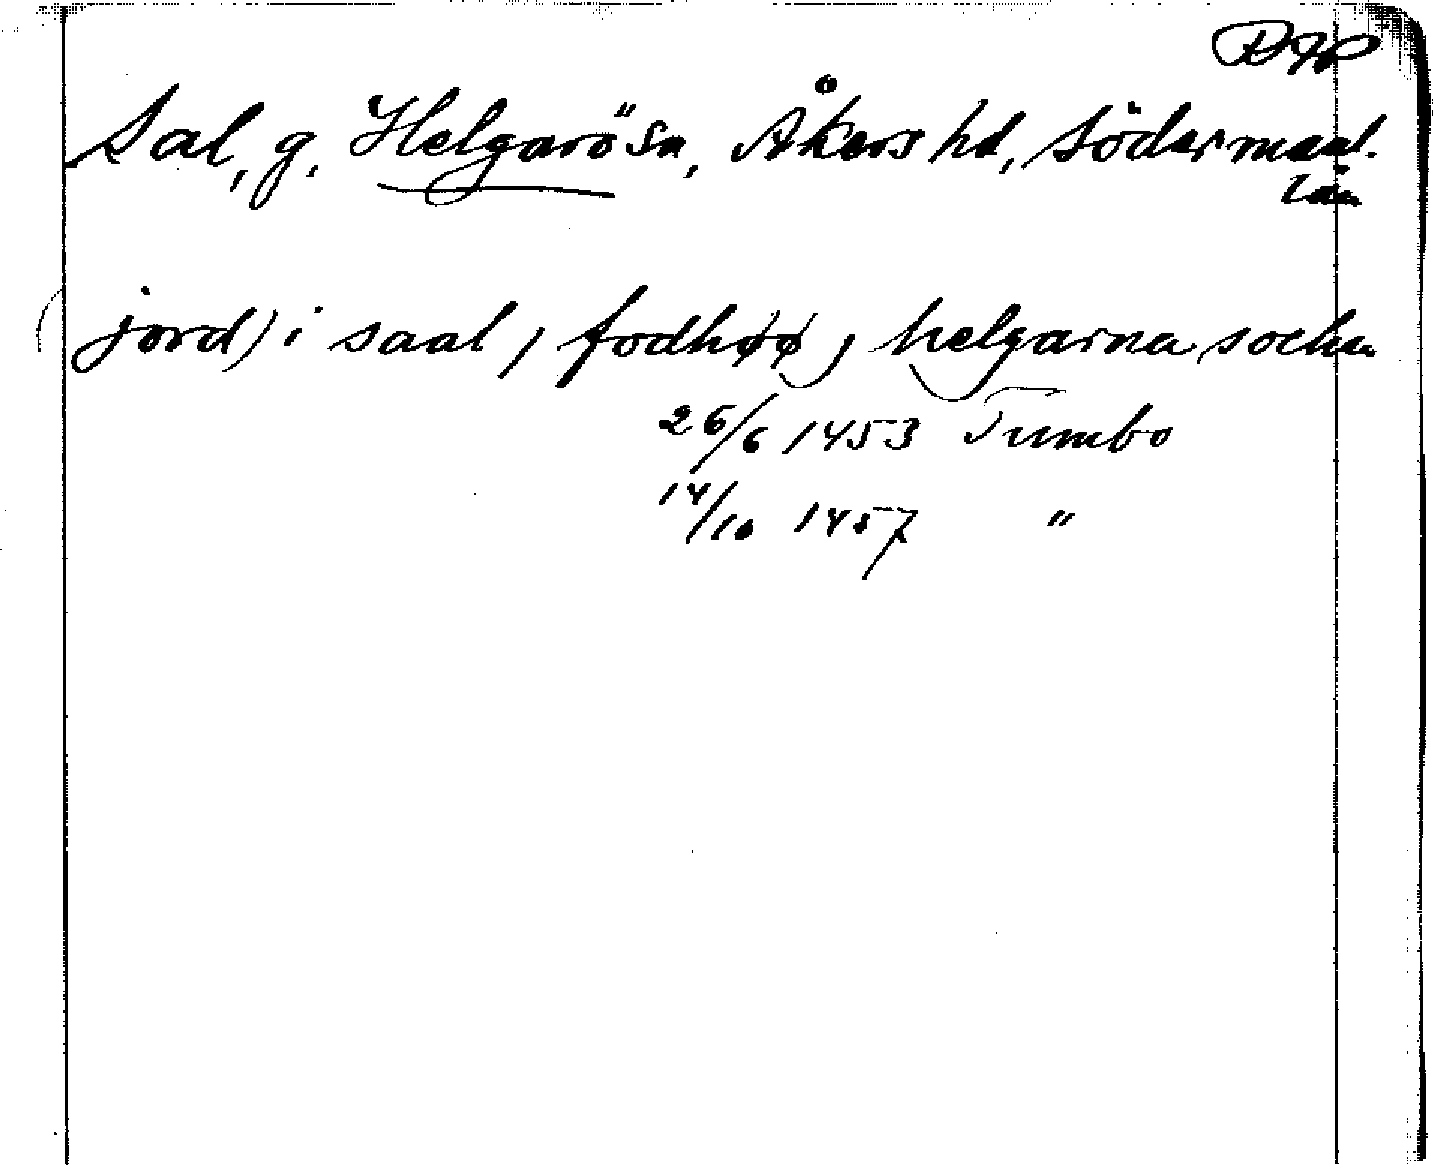 Sal, g. Helgarö sn, Åkers hd, Södermanl.
län
(jord) i saal, fodhøø, helgarna sochn
26/6 1453 Tumbo
14/10 1457 "